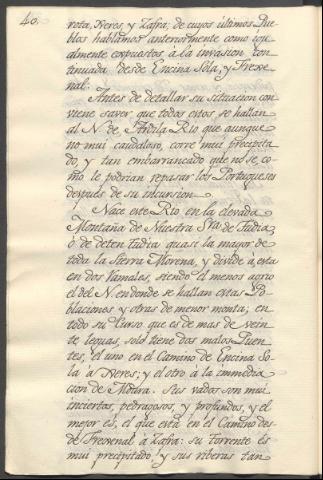 40.
rota, Xeres, y Zafra, de cuyos ultimos Pue
blos hablamos anteriormente como igu
almente expuestos à la invasion con
tinuada desde Encina Sola, y Frexe
nal.
Antes de detallar su situacion con
viene saver que todos estos, se hallan
al N. de Ardila Rio que aunque
no mui caudaloso, corre mui precipita
do, y tan embarrancado que no se, co
mo le podrian repasar los Portugueses
despues de su incursion
Nace este Rio en la elevada
Montaña de Nuestra Sra. de Tudia,
ó de tentudia quasi la mayor de
toda la Sierra Morena, y divide à esta
en dos Ramales, siendo el menos agrio
el del N. en donde se hallan estas Po
blaciones y otras de menor monta; en
todo su Curso que es de mas de vein
te leguas, solo tiene dos malos Puen
tes, el uno en el Camino de Encina So
la à Xeres; y el otro à la immedia
cion de Moura. Sus vados son mui
inciertos, pedragosos, y profundos, y el
mejor es, el que està en el Camino
de Frexenal à Zafra: su torrente es
mui precipitado y sus riberas tan